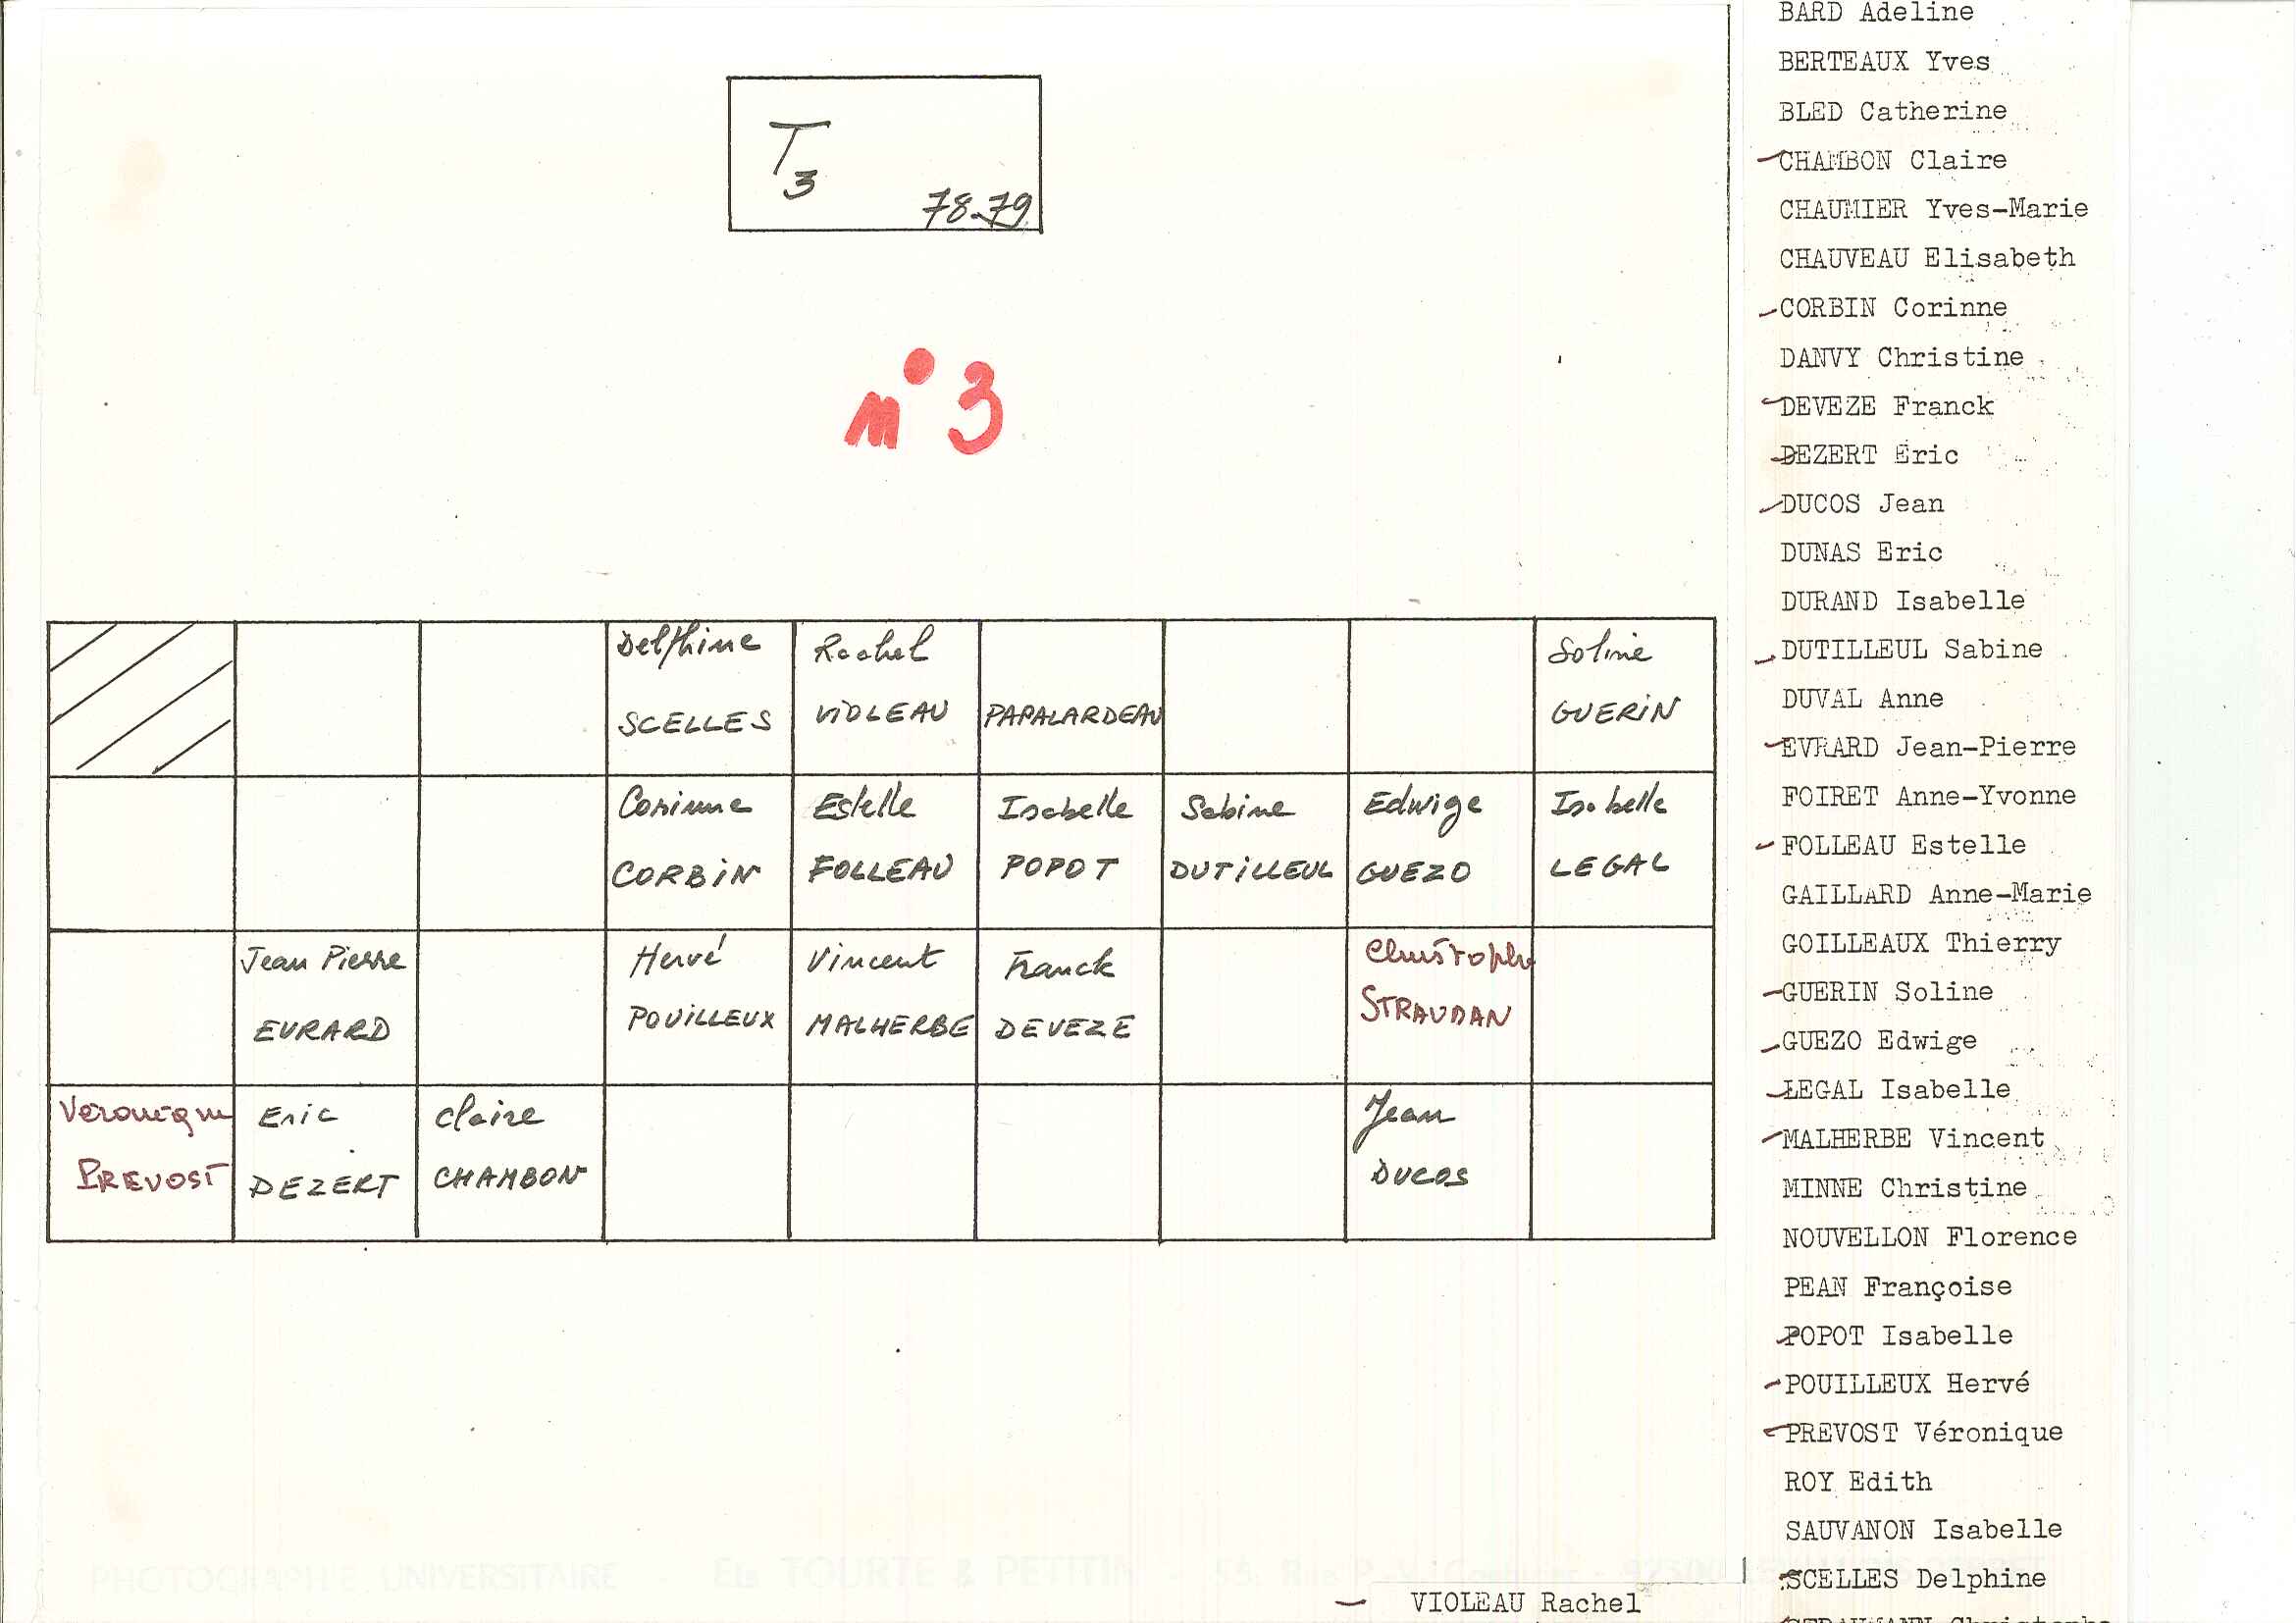 T3
78-79
n°3
Delphine
SCELLES
Rachel
VIOLEAU
PAPALARDEAU
Soline
GUERIN
Corinne
CORBIN
Estelle
FOLLEAU
Isabelle
POPOT
Sabine
DUTILLEUL
Edwige
GUEZO
Isabelle
LEGAL
Jean Pierre
EVRARD
Hervé
POUILLEUX
Vincent
MALHERBE
Franck
DEVEZE
Christophe
STRAUDAN
Veronique
PREVOST
Eric
DEZERT
Claire
CHAMBON
Jean
DUCOS
BARD Adeline
BERTEAUX Yves
BLED Catherine
CHAMBON Claire
CHAUMIER Yves-Marie
CHAUVEAU Elisabeth
CORBIN Corinne
DANVY Christine
DEVEZE Franck
DEZERT Eric
DUCOS Jean
DUNAS Eric
DURAND Isabelle
DUTILLEUL Sabine
DUVAL Anne
EVRARD Jean-Pierre
FOIRET Anne-Yvonne
FOLLEAU Estelle
GAILLARD Anne-Marie
GOILLEAUX Thierry
GUERIN Soline
GUEZO Edwige
LEGAL Isabelle
MALHERBE Vincent
MINNE Christine
NOUVELLON Florence
PEAN Françoise
POPOT Isabelle
POUILLEUX Hervé
PREVOST Véronique
ROY Edith
SAUVANON Isabelle
SCELLES Delphine
VIOLEAU Rachel
PHOTOGRAPHE UNIVERSITAIRE - Ets TOURTE & PETITIN - 55, Rue P.-V.